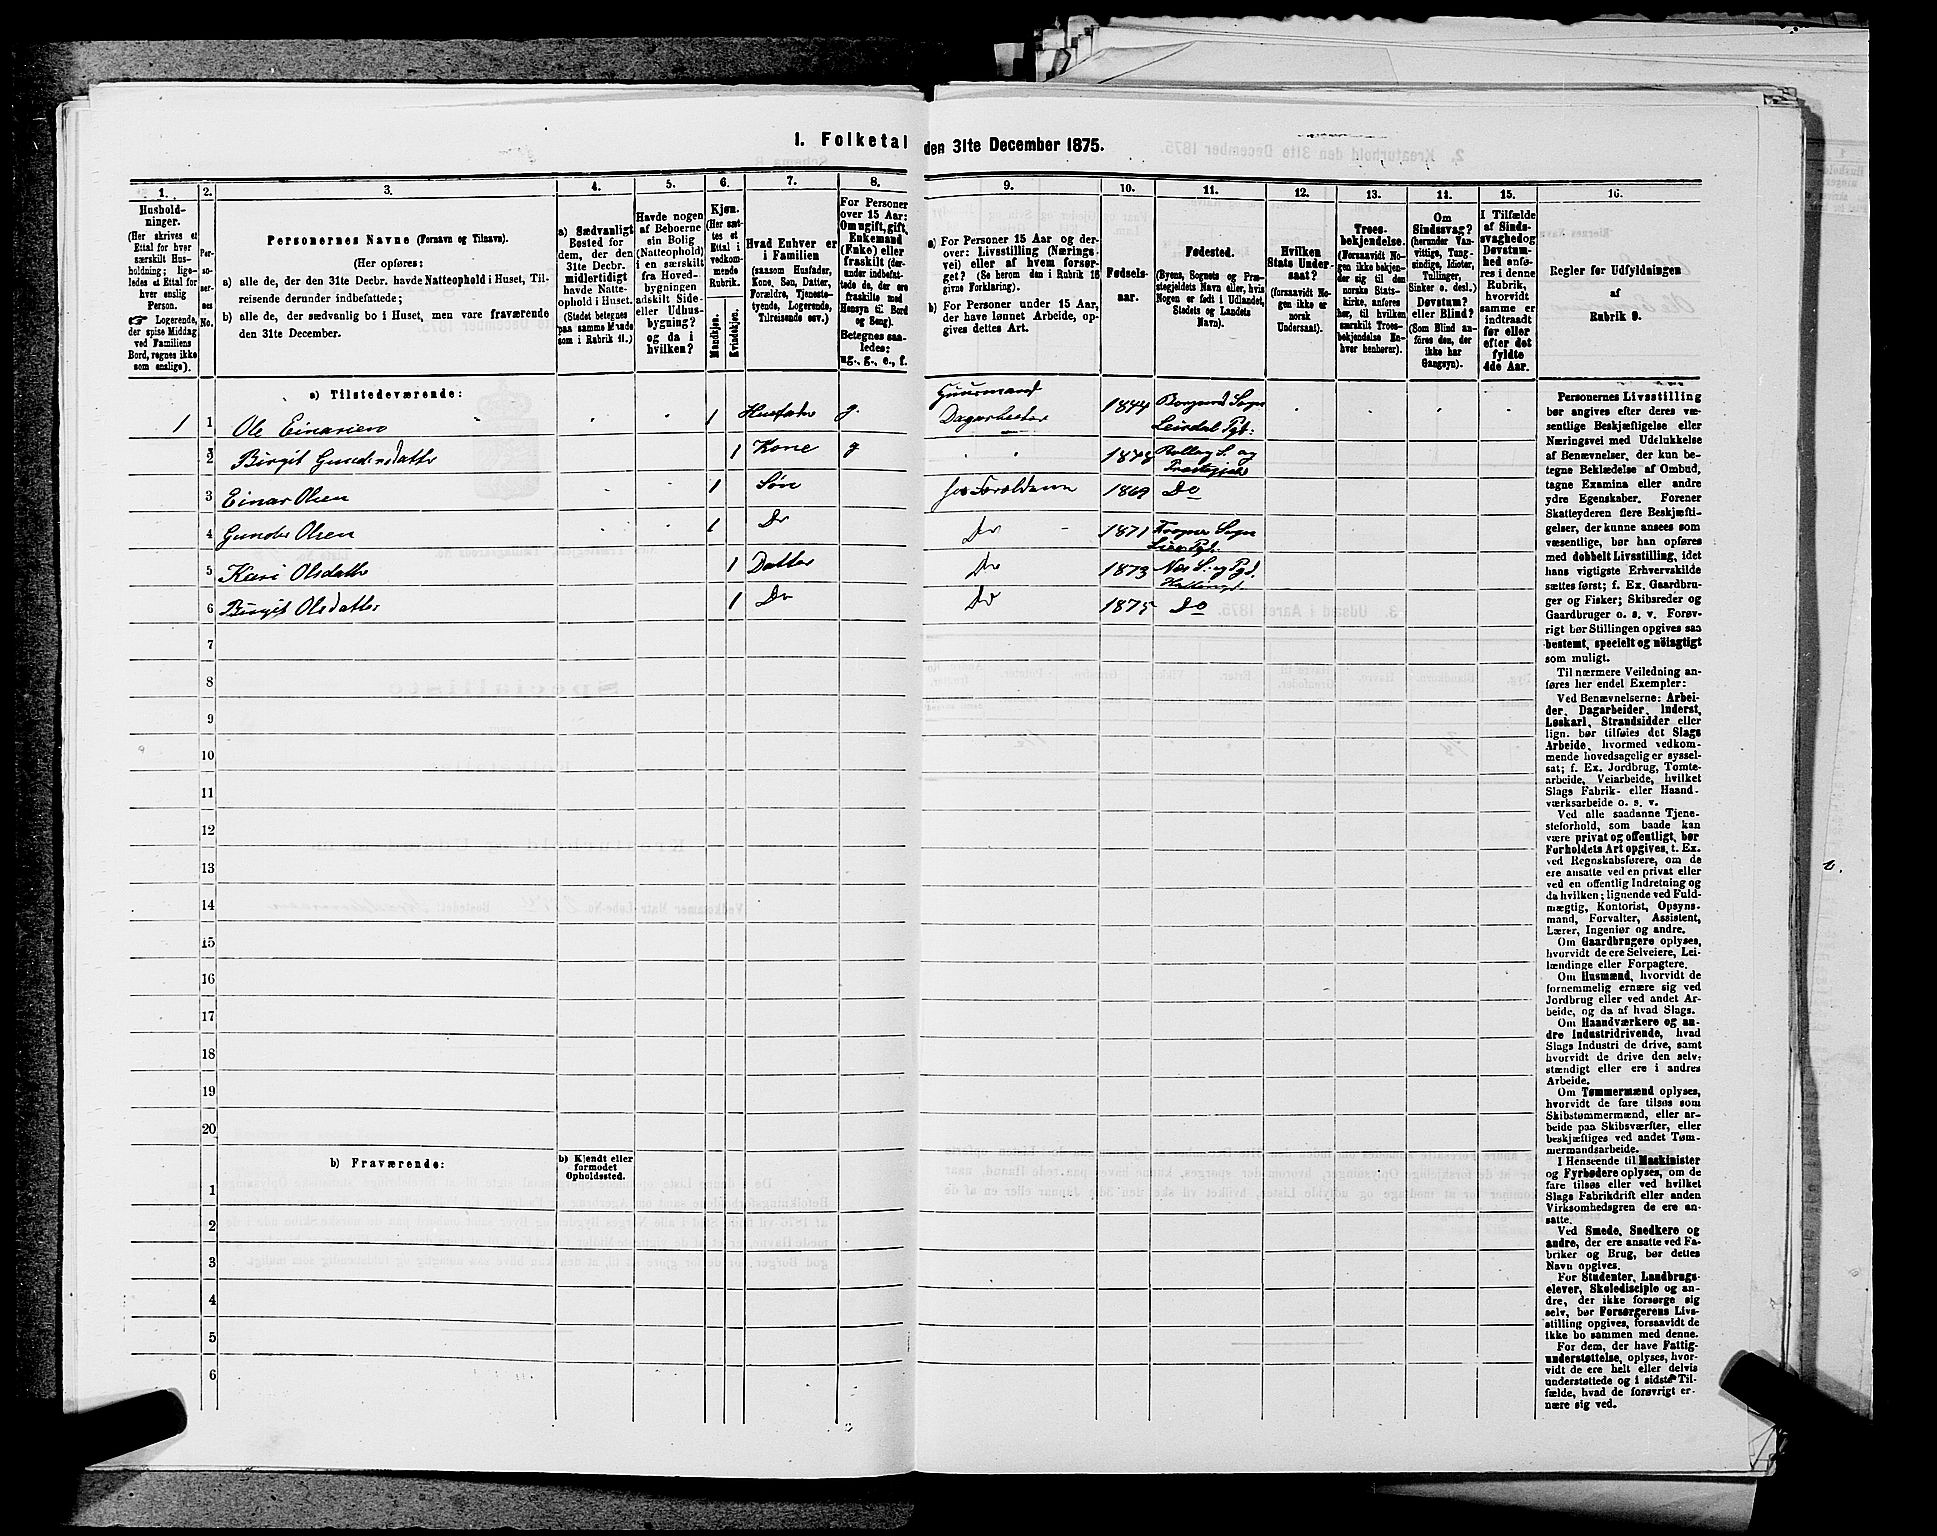 1. Folketal den 31te December 1875.
1.
2.
3.
4.
5.
6.
7.
8.
9.
10.
11.
12.
13.
14.
15.
16.
Hushold-
ninger.
(Her skrives et
Ettal for hver
særskilt Hus-
holdning; lige-
ledes et Ettal for
hver enslig
Person.
☞ Logerende,
der spise Middag
ved Familiens
Bord, regnes ikke
som enslige).
Per-
so-
ner-
nes
No.
Personernes Navne (Fornavn og Tilnavn).
(Her opføres:
a) alle de, der den 31te Decbr. havde Natteophold i Huset, Til-
reisende derunder indbefattede;
b) alle de, der sædvanlig bo i Huset, men vare fraværende
den 31te December.
a) Sædvanligt
Bosted for
dem, der den
31te Decbr.
midlertidigt
havde Natte-
ophold i Huset.
(Stedet betegnes
paa samme Maade
som i Rubrik 11.)
Havde nogen
af Beboerne
sin Bolig
(Natteophold)
i en særskilt
fra Hoved-
bygningen
adskilt Side-
eller Udhus-
bygning?
og da i
hvilken?
Kjøn.
(Her sæt-
tes et
Ettal i
vedkom-
mende
Rubrik.
Mandkjøn.
Kvindekjøn.
Hvad Enhver er
i Familien
(saasom Husfader,
Kone, Søn, Datter,
Forældre, Tjeneste-
tyende, Logerende,
Tilreisende osv.)
For Personer
over 15 Aar:
Om ugift, gift,
Enkemand
(Enke) eller
fraskilt (der-
under indbefat-
tede de, der ere
fraskilte med
Hensyn til Bord
og Seng).
Betegnes saa-
ledes:
ug., g., e., f.
a) For Personer 15 Aar og der-
over: Livsstilling (Nærings-
vei) eller af hvem forsør-
get? (Se herom den i Rubrik 16
givne Forklaring).
b) For Personer under 15 Aar,
der have lønnet Arbeide, op-
gives dettes Art.
Fødsels-
aar.
Fødested.
(Byens, Sognets og Præ-
stegjeldets Navn eller, hvis
Nogen er født i Udlandet,
Stedets og Landets
Navn).
Hvilken
Stats Under-
saat?
(forsaavidt No-
gen ikke er
norsk
Undersaat).
Troes-
bekjendelse.
(Forsaavidt No-
gen ikke bekjen-
der sig til den
norske Stats-
kirke, anføres
her, til hvilken
særskilt Troes-
bekjendelse En-
hver henhører).
Om
Sindssvag?
(herunder Van-
vittige, Tung-
sindige, Idioter,
Tullinger,
Sinker o. desl.)
Døvstum?
eller Blind?
(Som Blind an-
føres den, der
ikke har
Gangsyn).
I Tilfælde
af Sinds-
svaghed og
Døvstum-
hed anfø-
res i denne
Rubrik,
hvorvidt
samme er
indtraadt
før eller
efter det
fyldte
4de Aar.
Regler for Udfyldningen
af
Rubrik 9.
a) Tilstedeværende:
1 1 Ole Einarsen 1 Husfader g. Huusmand Dagarbeider 1844 Borgund Sogn Leirdal Pgt:
2 Birgit Gundersdatter 1 Kone g 1848 Rollag S. og Præstegjeld
3 Einar Olsen 1 Søn fors Forældrene 1869 Do
4 Gunder Olsen 1 Do Do 1871 Sogn Lier Pgt:
5 Kari Olsdatter 1 Datter Do 1873 Næs S. og Pgd. Hallingd.
6 Birgit Olsdatter 1 Do Do 1875 Do
7
8
9
10
11
12
13
14
15
16
17
18
19
20
b) Fraværende:
b) Kjendt eller
formodet
Opholdssted.
1
2
3
4
5
6
Personernes Livsstilling
bør angives efter deres væ-
sentlige Beskjæftigelse eller
Næringsvei med Udelukkelse
af Benævnelser, der kun be-
tegne Beklædelse af Ombud,
tagne Examina eller andre
ydre Egenskaber. Forener
Skatteyderen flere Beskjæfti-
gelser, der kunne ansees som
væsentlige, bør han opføres
med dobbelt Livsstilling, idet
hans vigtigste Erhvervskilde
sættes først; f. Ex. Gaardbru-
ger og Fisker; Skibsreder og
Gaardbruger o. s. v. Forøv-
rigt bør Stillingen opgives saa
bestemt, specielt og nöiagtigt
som muligt.
Til nærmere Veiledning an-
føres her endel Exempler:
Ved Benævnelserne: Arbei-
der, Dagarbeider, Inderst,
Løskarl, Strandsidder eller
lign. bør tilføies det Slags
Arbeide, hvormed vedkom-
mende hovedsagelig er syssel-
sat; f. Ex. Jordbrug, Tomte-
arbeide, Veiarbeide, hvilket
Slags Fabrik- eller Haand-
værksarbeide o. s. v.
Ved alle saadanne Tjene-
steforhold, som baade kan
være privat og offentligt, bør
Forholdets Art opgives, f. Ex.
ved Regnskabsførere, om de
ere ansatte ved en privat eller
ved en offentlig Indretning og
da hvilken; lignende ved Fuld-
mægtig, Kontorist, Opsyns-
mand, Forvalter, Assistent,
Lærer, Ingeniør og andre.
Om Gaardbrugere oplyses,
hvorvidt de ere Selveiere, Lei-
lændinge eller Forpagtere.
Om Husmænd, hvorvidt de
fornemmelig ernære sig ved
Jordbrug eller ved andet Ar-
beide, og da af hvad Slags.
Om Haandværkere og an-
dre Industridrivende, hvad
Slags Industri de drive, samt
hvorvidt de drive den selv-
stændigt eller ere i andres
Arbeide.
Om Tømmermænd oplyses,
hvorvidt de fare tilsøs som
Skibstømmermænd, eller ar-
beide paa Skibsværfter, eller
beskjæftiges ved andet Tøm-
mermandsarbeide.
I Henseende til Maskinister
og Fyrbødere oplyses, om de
fare tilsøs eller ved hvilket
Slags Fabrikdrift eller anden
Virksomhedsgren de ere an-
satte.
Ved Smede, Snedkere og
andre, der ere ansatte ved Fa-
briker og Brug, bør dettes
Navn opgives.
For Studenter, Landbrugs-
elever, Skoledisciple og an-
dre, der ikke forsørge sig
selv, bør Forsørgerens Livs-
stilling opgives, forsaavidt de
ikke bo sammen med denne.
For dem, der have Fattig-
understøttelse, oplyses, hvor-
vidt de ere helt eller delvis
understøttede og i sidste Til-
fælde, hvad de forøvrigt er-
nære sig ved.